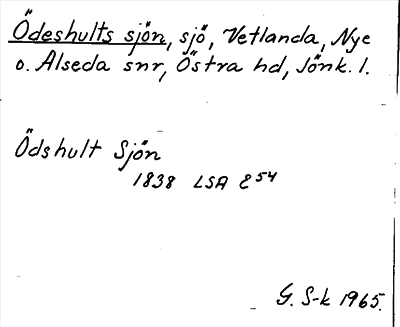 Ödeshults sjön, sjö, Vetlanda, Nye
o. Alseda snr, Östra hd, Jönk. l.
Ödshult Sjön
1838 LSA E54
G. S-k 1965.